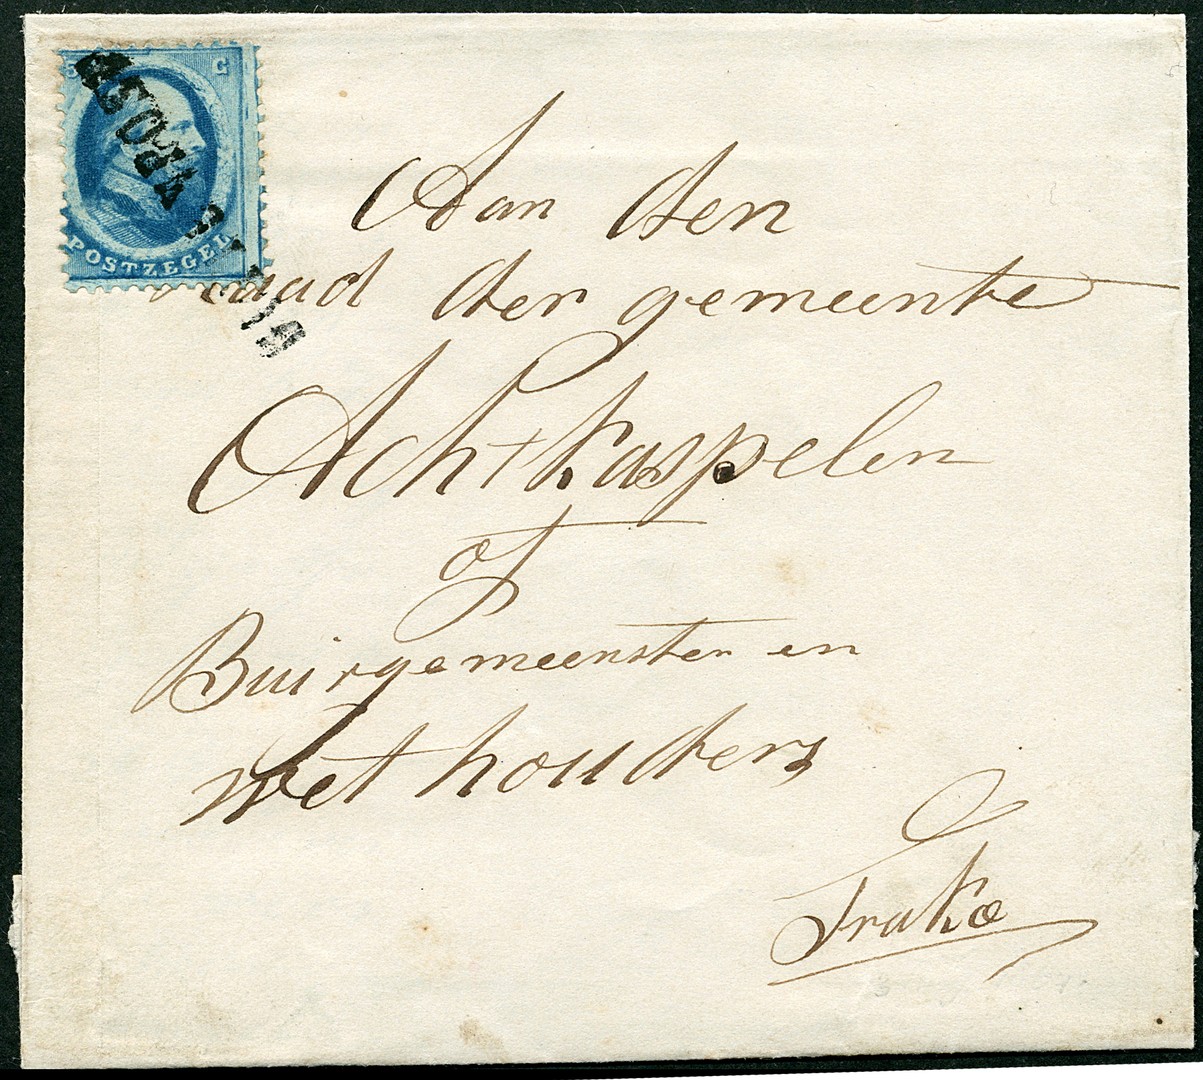 C
POSTZEGEL
Aan den
der gemeente
Achtkaspelen
of
Buirgemeenster en
wethouders